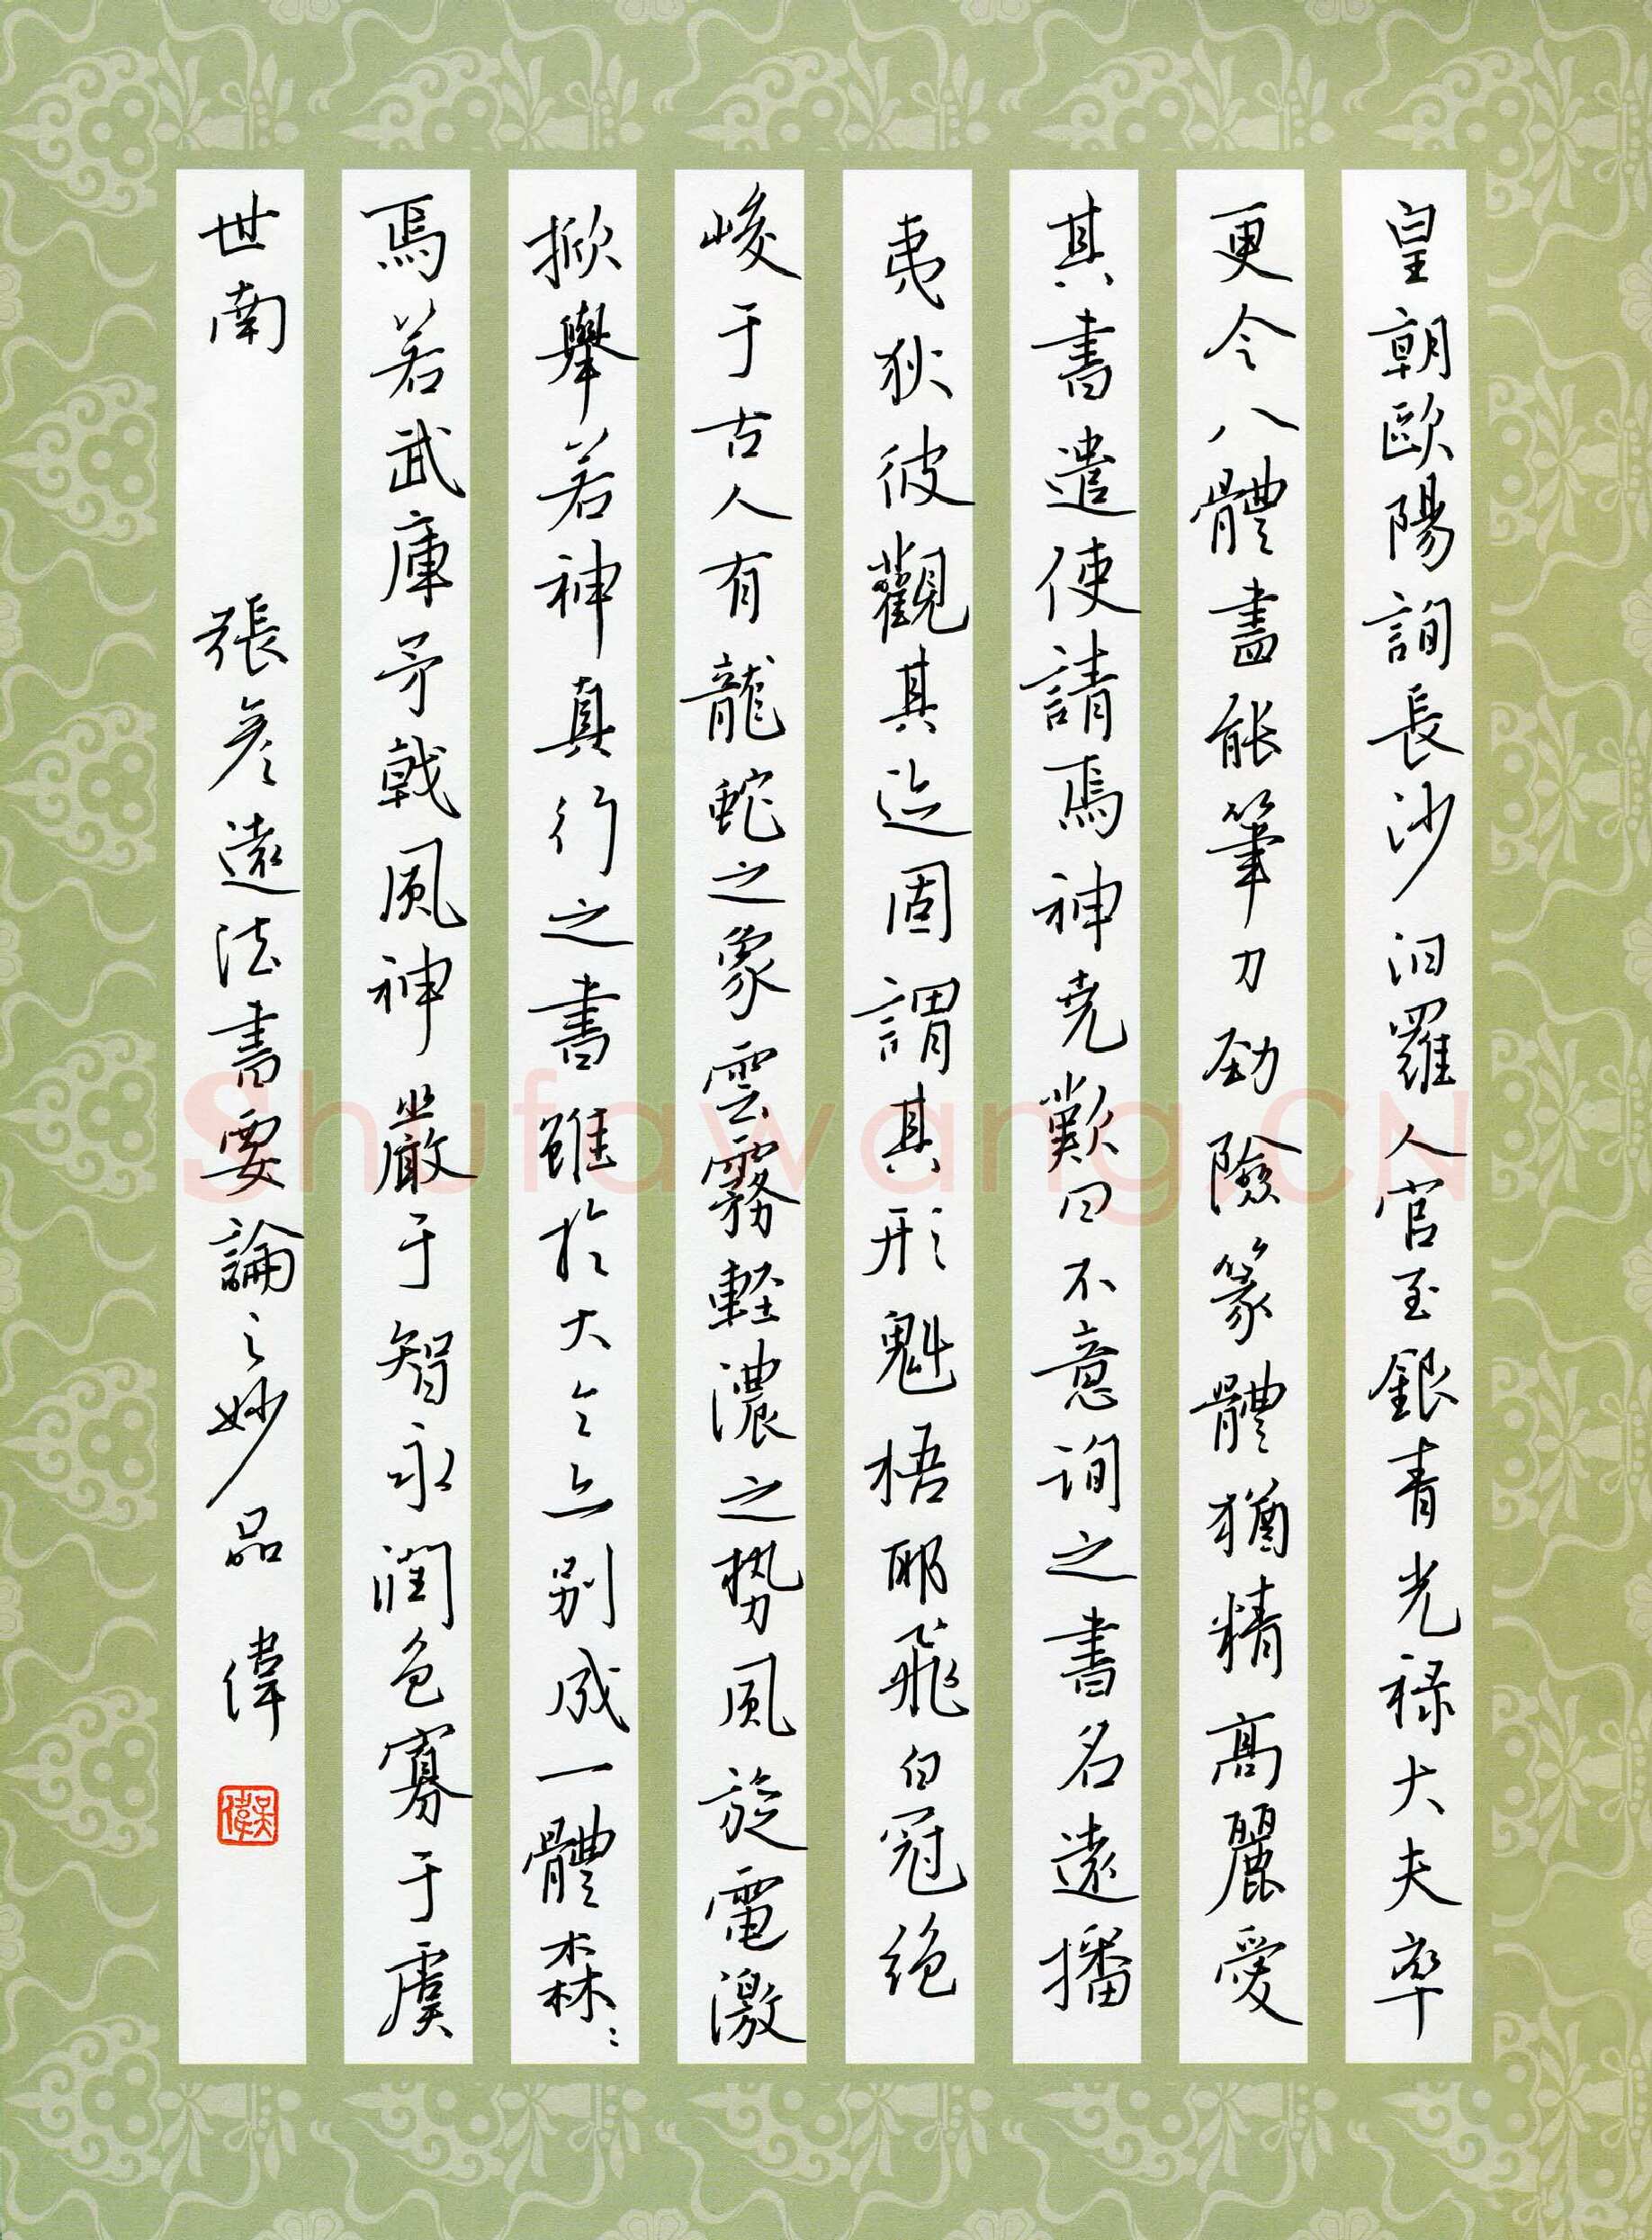 皇朝歐陽詢長沙汨羅人官至銀青光禄大夫率
更令八體盡能筆刀劲險篆體猶精高麗愛
其書遣使請焉神尭歎曰不意询之書名遠播
夷狄彼觀其迹固謂其形魁梧耶飛白冠絶
峻于古人有龍蛇之象雲霧軽濃之势風旋電激
掀舉若神真行之書雖於大令亦别成一體森〻
焉若武庫矛戟風神嚴于智永潤色寡于虞
世南 張彦遠法書要論之妙品 偉
吴偉
Shufawang.CN